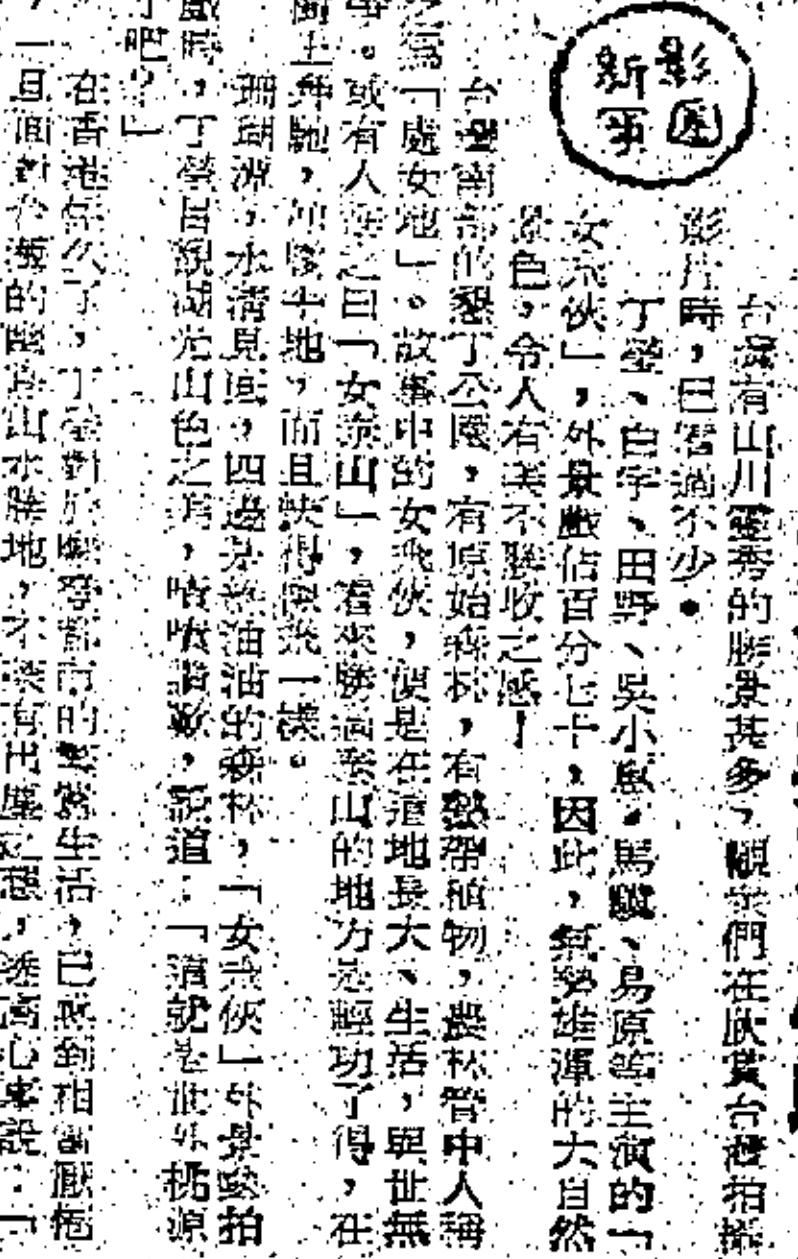 影圈
新事
台灣有山川靈秀的勝景甚多，觀眾們在欣賞台灣拍攝
影片時，已看過不少。
丁瑩、白宇、田野、吳小 、馬驥、易原等主演的「
女飛俠」，外景戲佔百分七十，因此，氣勢雄渾的大自然
景色，令人有美不勝收之感！
台灣南部的墾丁公園，有原始森林，有熱帶植物，農林管中人稱
之為「處女地」。故事中的女飛俠，便是在這地長大、生活，與世無
爭。或有人 之曰「女泰山」，看來勝過泰山的地方是輕功了得，在
樹上奔馳，如履平地，而且快得像飛一樣。
珊瑚潭，水清見底，四邊是綠油油的森林，「女飛俠」外景隊拍
戲時，丁瑩目覩湖光山色之 ，嘖嘖讚歎，說道：「這就是世外桃源
了吧？」
在香港住久了，丁瑩對於 都市的繁囂生活，已感到相當厭倦
，一旦面對台灣的 山水勝地，不禁有出塵之想， 心事說：「